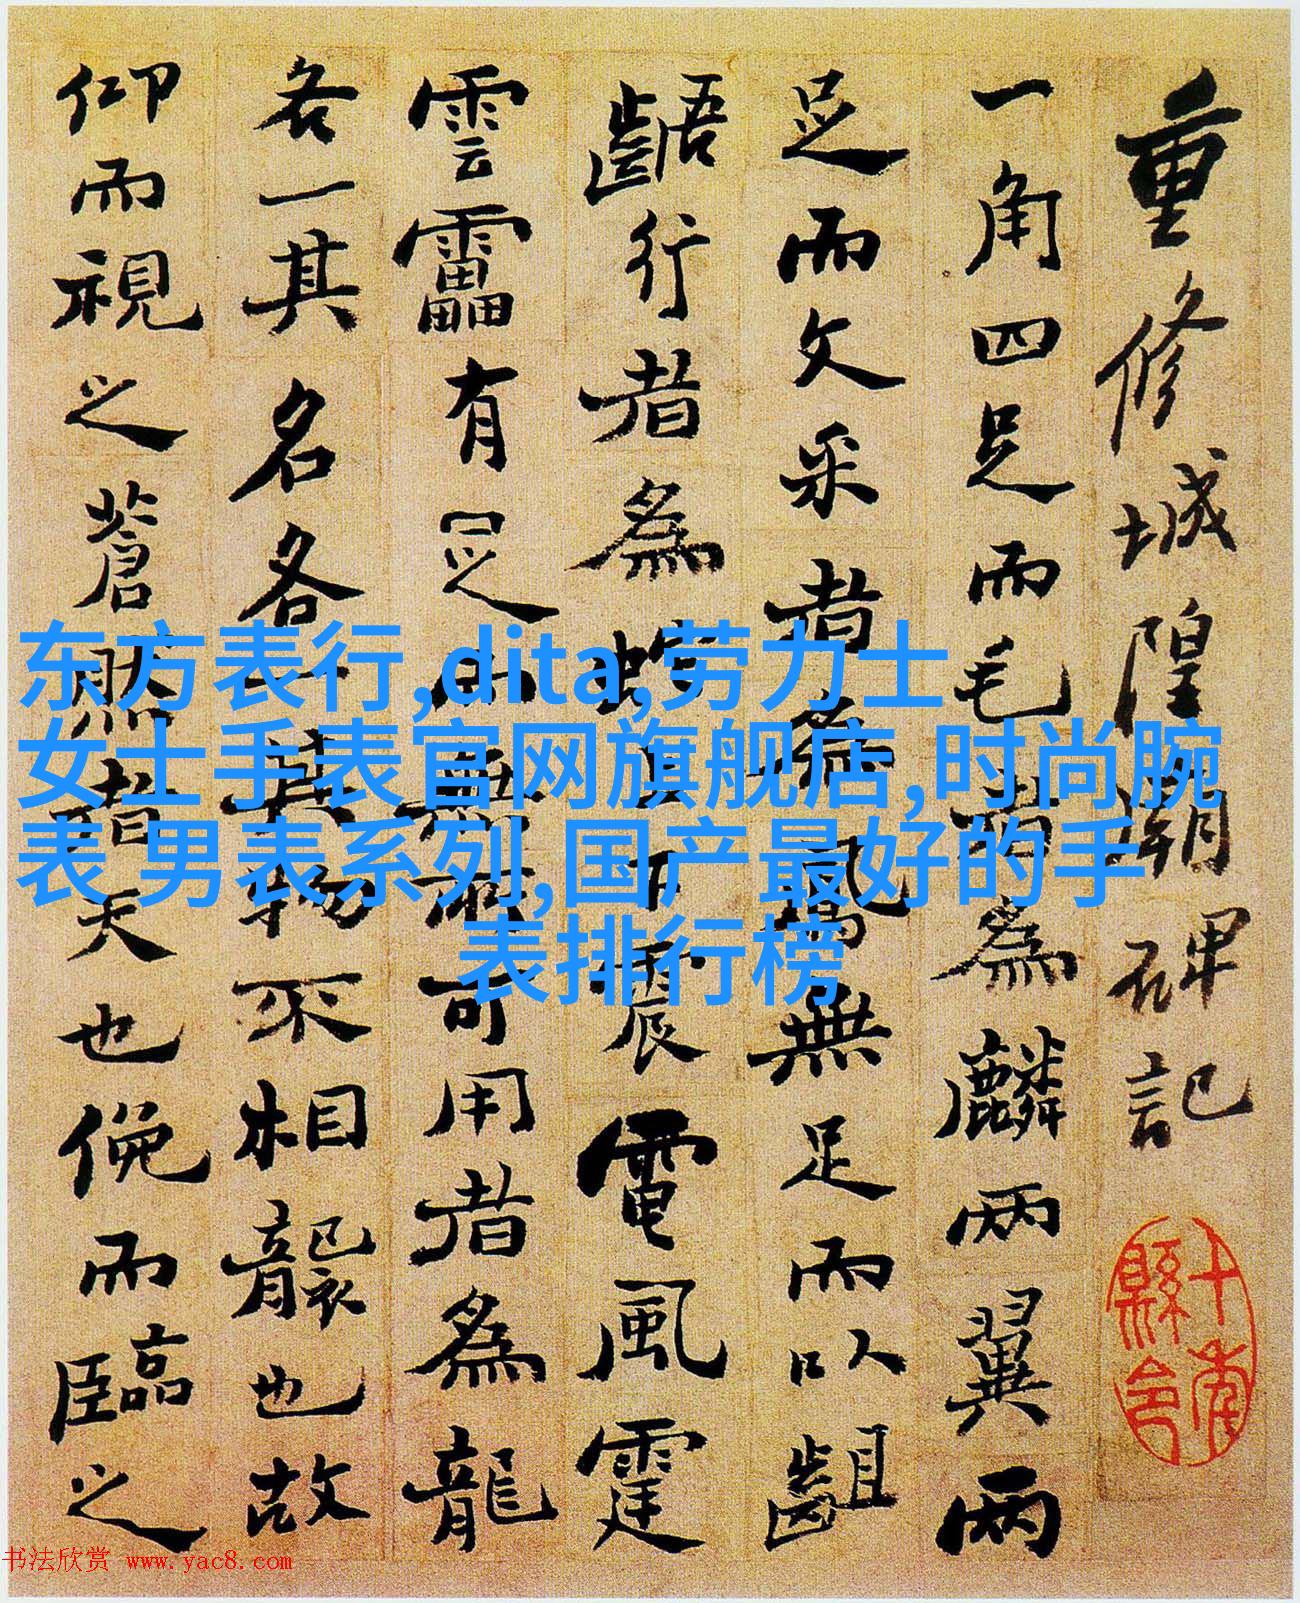 重修城隍廟碑記
一角四足而毛者為麟兩翼兩
足而文采者為鳳無足而以齟
齬行者為蛇下震電風霆
雲靁有足而無所可用者為龍
各一其名各一其物不相襲也故
仰而視之蒼然者天也俛而臨之
东方表行,dita,劳力士
女士手表官网旗舰店,时尚腕
表 男表系列,国产最好的手
表排行榜
书法欣赏 www.yac8.com